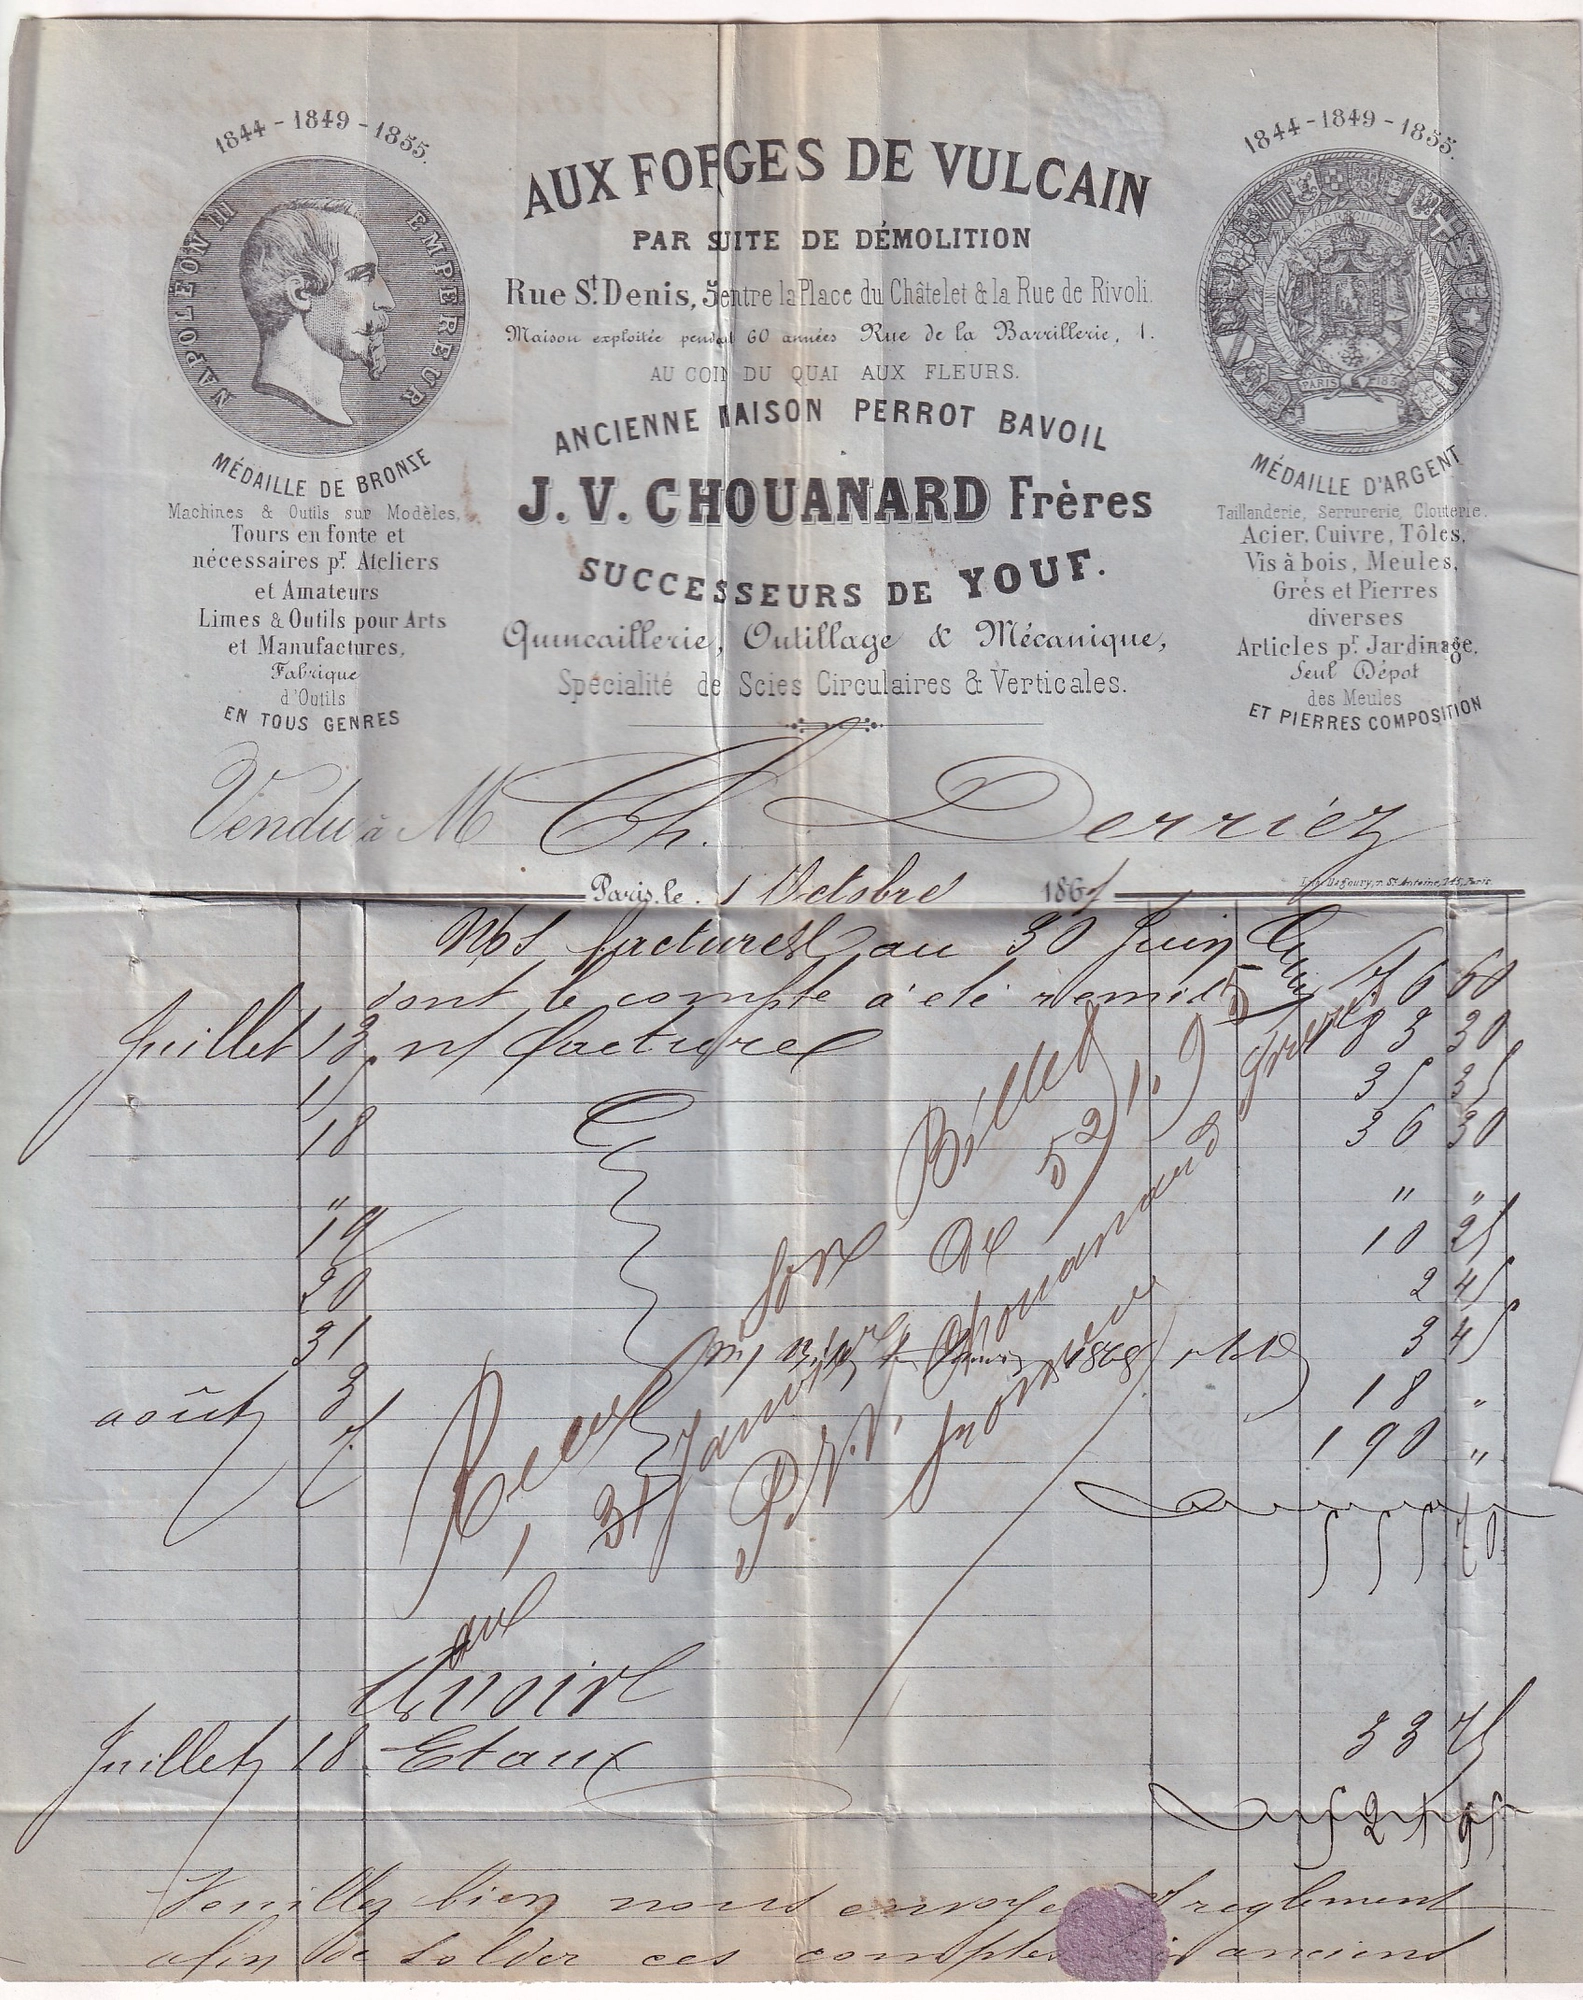 1844 - 1849 - 1855.
NAPOLEON III EMPEREUR
MÉDAILLE DE BRONZE
Machines & Outils sur Modèles,
Tours en fonte et
nécessaires pr. Ateliers
et Amateurs
Limes & Outils pour Arts
et Manufactures,
Fabrique
d'Outils
EN TOUS GENRES
AUX FORGES DE VULCAIN
PAR SUITE DE DÉMOLITION
Rue St. Denis, 5 entre la Place du Châtelet & la Rue de Rivoli.
Maison exploitée pendant 60 années Rue de la Barrillerie, 1.
AU COIN DU QUAI AUX FLEURS.
ANCIENNE MAISON PERROT BAVOIL
J. V. CHOUANARD Frères
SUCCESSEURS DE YOUF.
Quincaillerie, Outillage & Mécanique,
Spécialité de Scies Circulaires & Verticales.
1844 - 1849 - 1855.
PARIS
MÉDAILLE D'ARGENT
Taillanderie, Serrurerie, Clouterie,
Acier, Cuivre, Tôles,
Vis à bois, Meules,
Grès et Pierres
diverses
Articles pr. Jardinage,
Seul Dépot
des Meules
ET PIERRES COMPOSITION
Vendu à M Ch. Derriéz
Paris, le 1 Octobre 1867
Nos factures au 30 Juin
dont le compte à été remis 176 60
Juillet 13 n/ facture 83 30
17 35 35
18 36 30
" " "
19 10 25
20 2 45
31 3 45
août 3 18 "
7 190 "
555 70
Billet
521.95
Chouanard frères
31 Janvier
P. J. V.
1868
Juillet 18 Etaux 33 75
521 95
Veuillez bien nous envoyer reglement
afin de solder ces comptes anciens